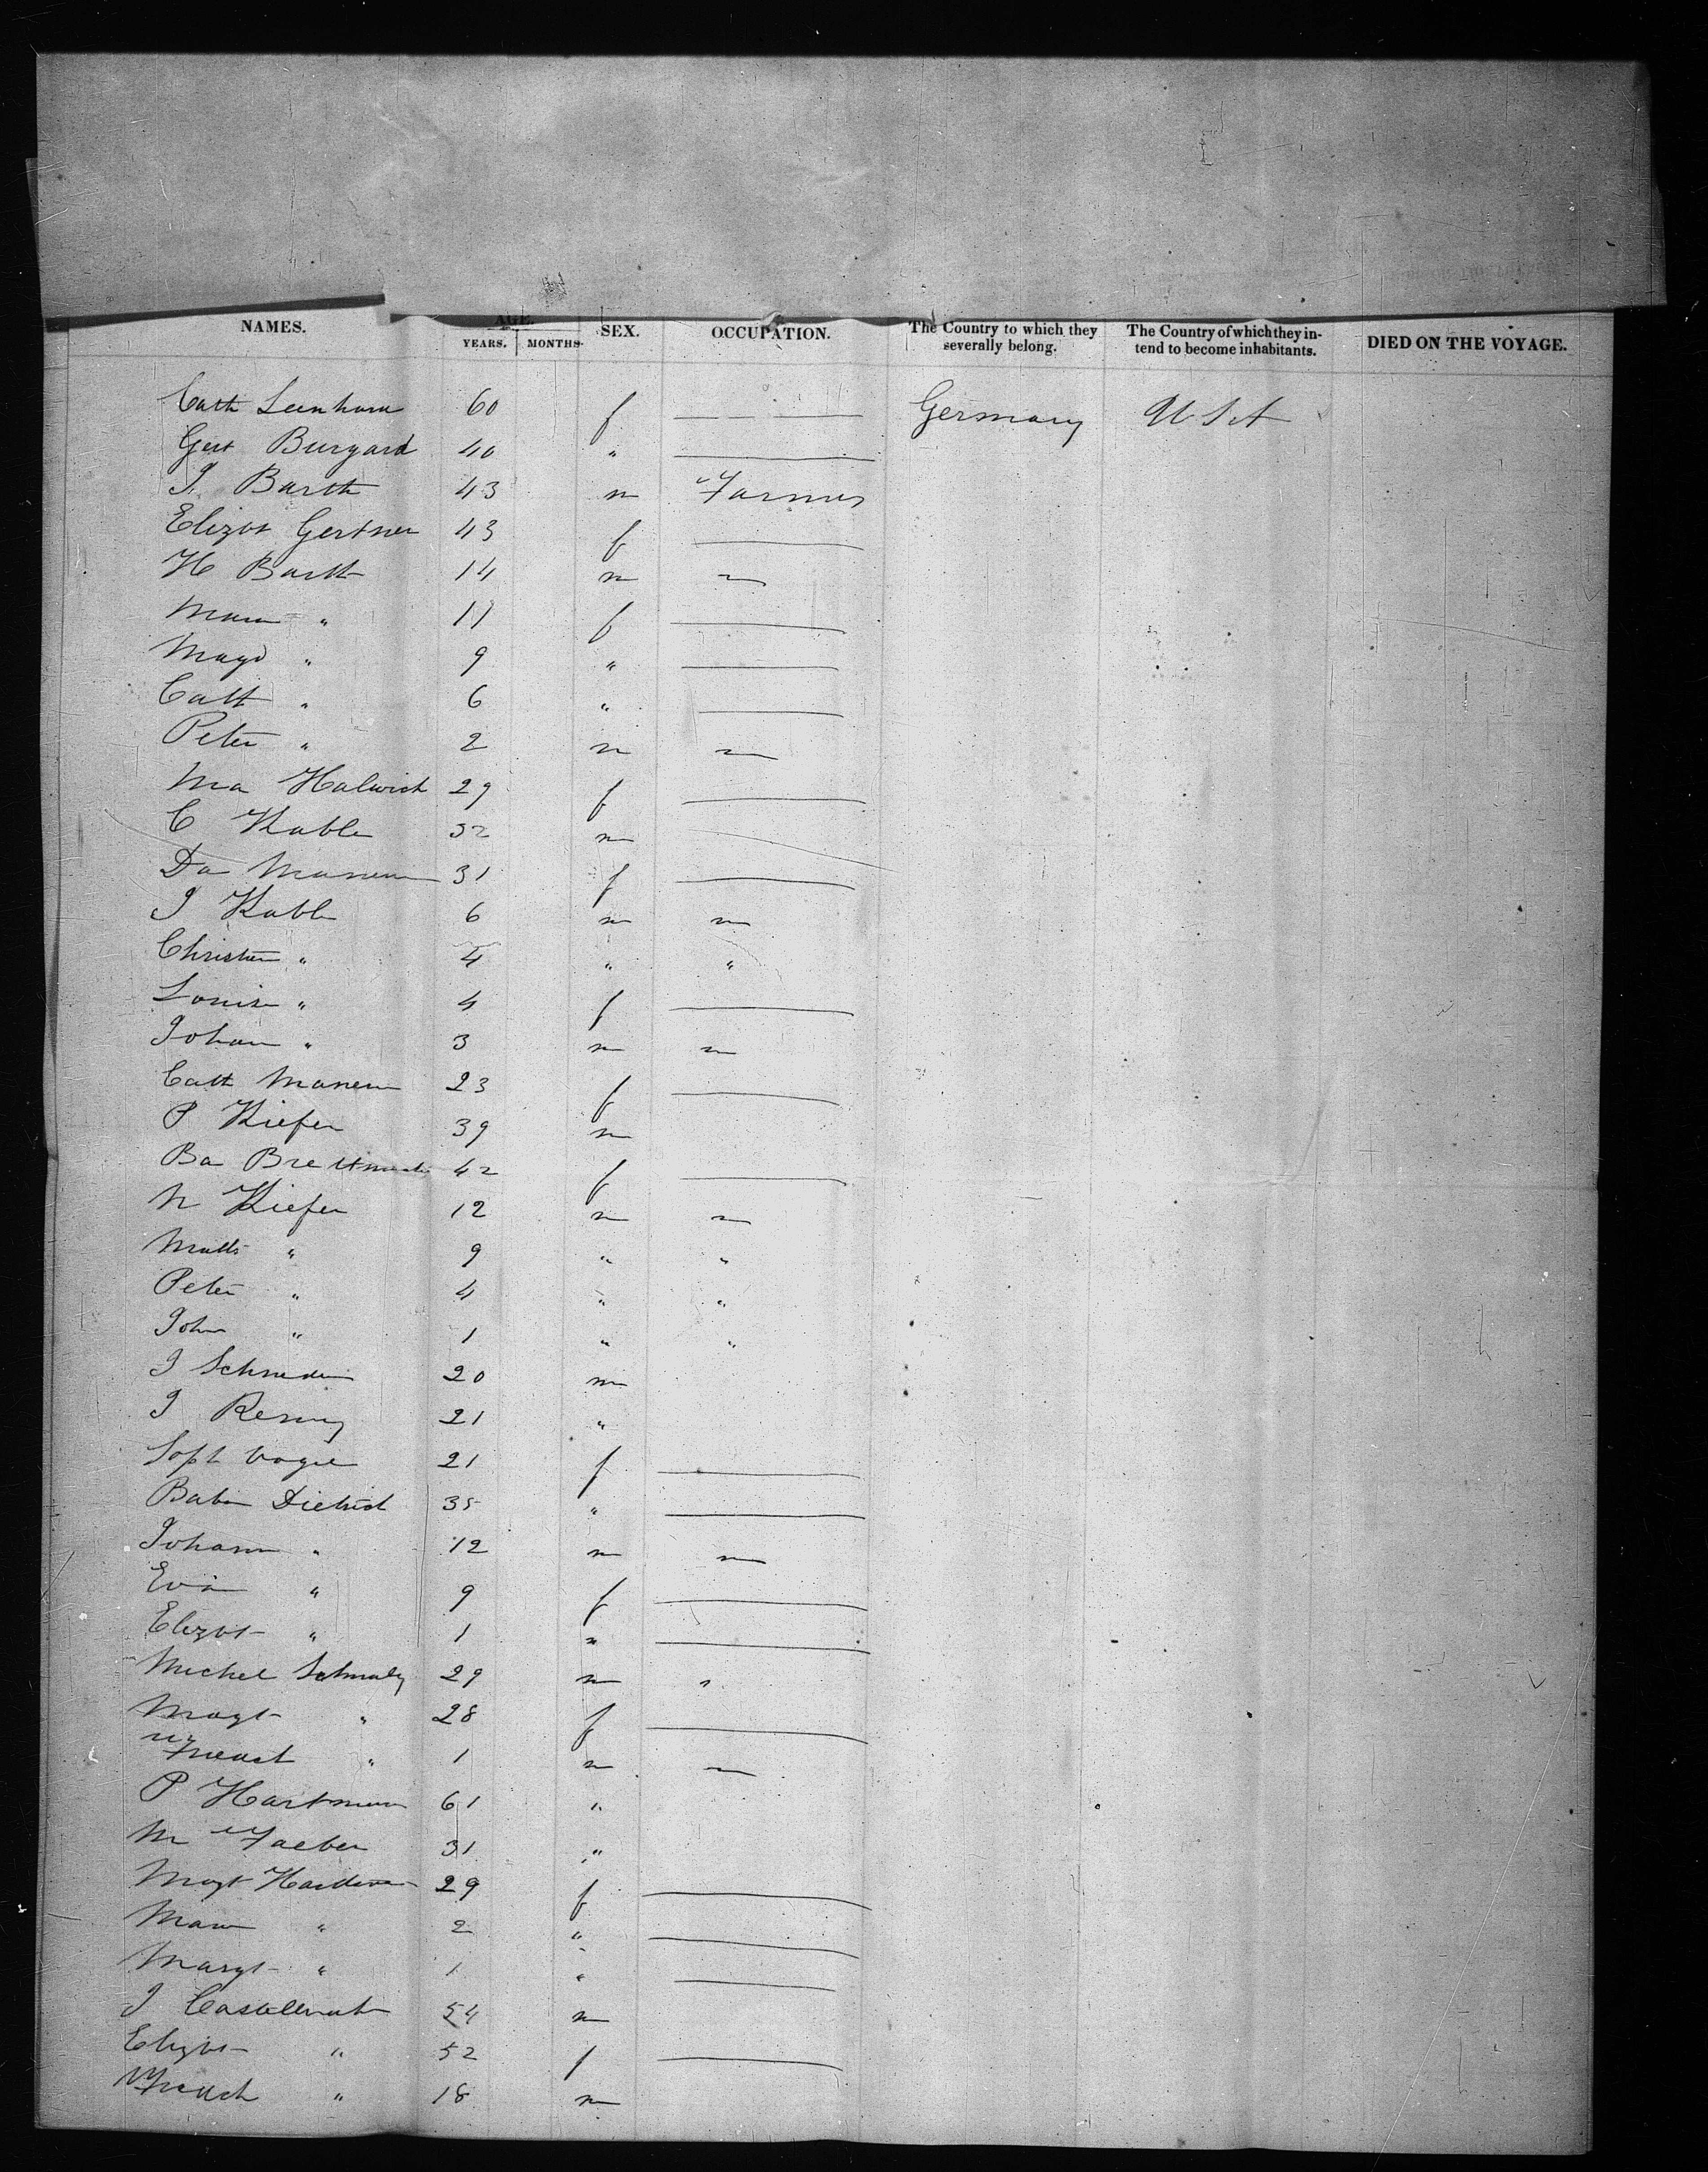 NAMES. AGE. YEARS. MONTHS. SEX. OCCUPATION. The Country to which they severally belong. The Country of which they intend to become inhabitants. DIED ON THE VOYAGE.
Cath 60 f — Germany USA
Gert Burgard 40 " —
J. Barth 43 m Farmer
Elizbt Gertner 43 f —
H Barth 14 m —
" 11 f —
" 9 " —
Cath " 6 " —
Peter " 2 m —
Ma Halwich 29 f —
C Kable 32 m
Da 31 f —
J Kable 6 m —
Christian " 4 " "
Louise " 4 f —
Johann " 3 m —
Cath 23 f —
P Kiefer 39 m
Ba 42 f —
N Kiefer 12 m —
Math " 9 " "
Peter " 4 " "
John " 1 " "
J Schneider 20 m
J 21 "
Soph 21 f —
Dietrich 35 " —
Johann " 12 m —
Eva " 9 f —
Elizbt " 1 " —
Michel Schmaly 29 m "
Magt " 28 f —
" 1 m —
P Hartmann 61 "
M Faeber 31 "
Magt 29 f —
" 2 " —
Margt " 1 " —
J 54 m
Elizbt " 52 f —
" 18 m